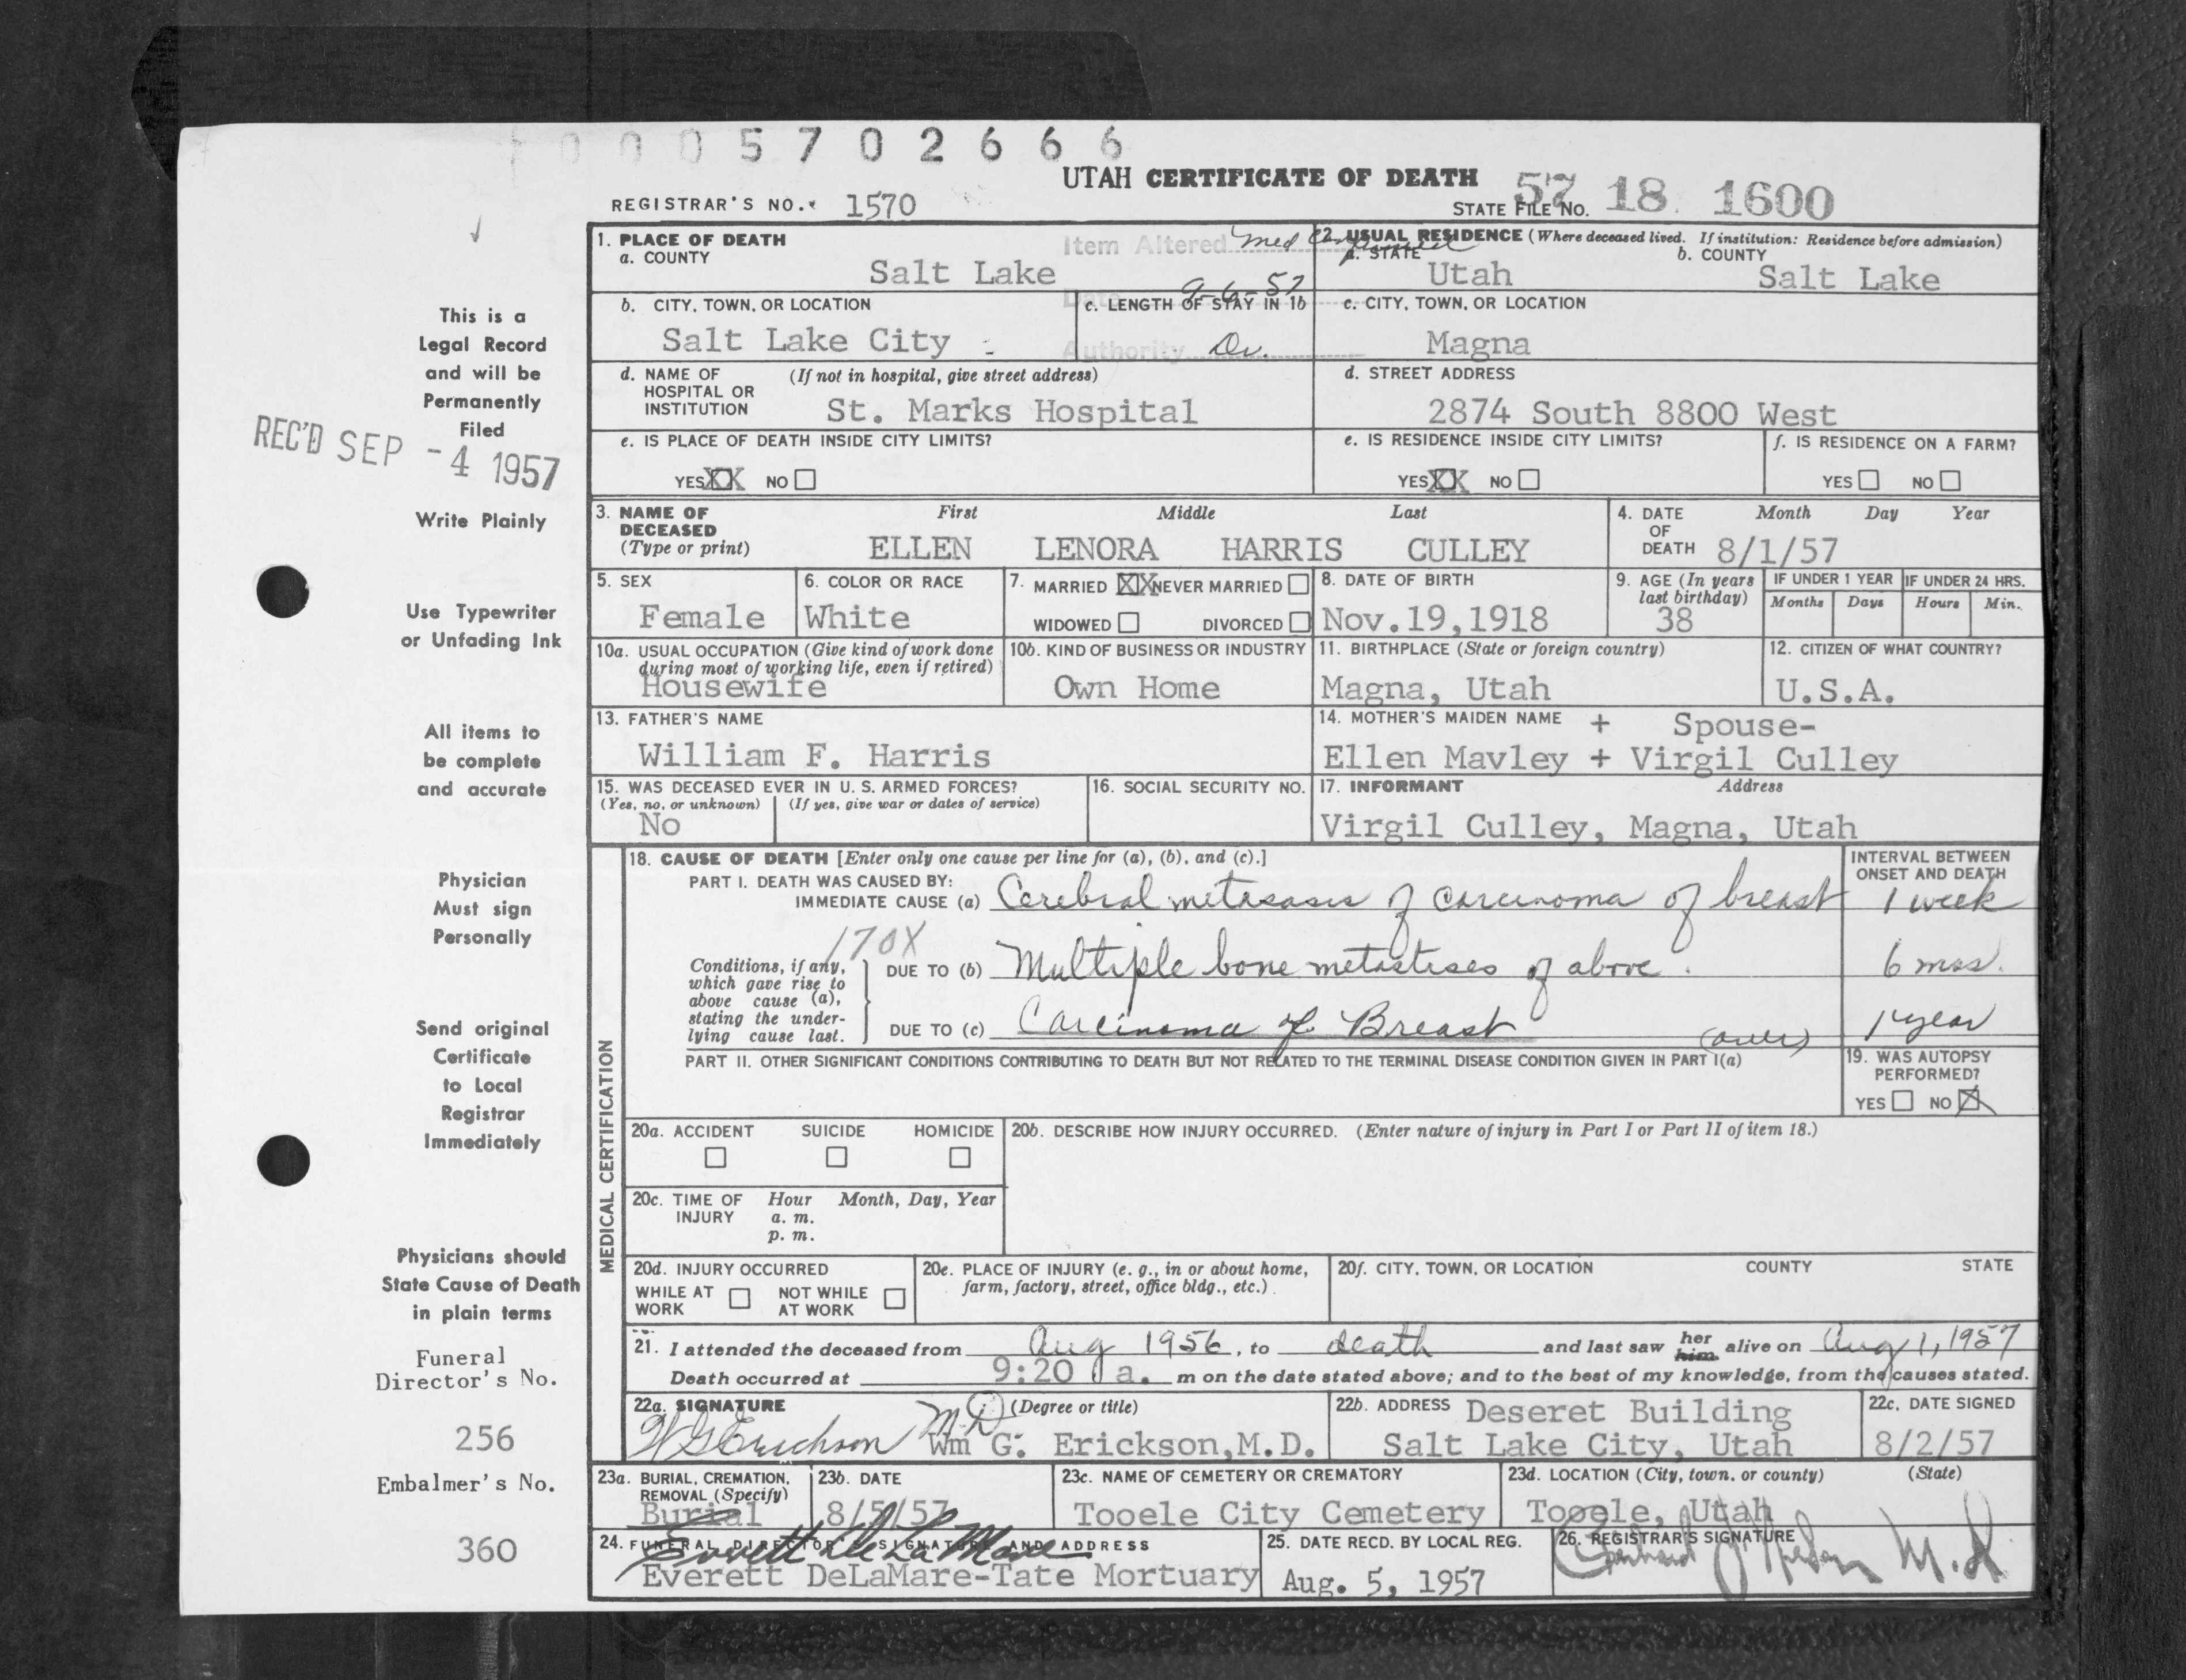 0005702666
UTAH CERTIFICATE OF DEATH
REGISTRAR'S NO. 1570
STATE FILE NO. 57 18 1600
1. PLACE OF DEATH
a. COUNTY
Salt Lake
Item Altered Med
Date 9-6-57
Authority Dr.
2. USUAL RESIDENCE (Where deceased lived. If institution: Residence before admission)
a. STATE b. COUNTY
Utah Salt Lake
b. CITY, TOWN, OR LOCATION
Salt Lake City
c. LENGTH OF STAY IN 1b
c. CITY, TOWN, OR LOCATION
Magna
d. NAME OF HOSPITAL OR INSTITUTION (If not in hospital, give street address)
St. Marks Hospital
d. STREET ADDRESS
2874 South 8800 West
e. IS PLACE OF DEATH INSIDE CITY LIMITS?
YES XX NO
e. IS RESIDENCE INSIDE CITY LIMITS?
YES XX NO
f. IS RESIDENCE ON A FARM?
YES NO
3. NAME OF DECEASED (Type or print)
First Middle Last
ELLEN LENORA HARRIS CULLEY
4. DATE OF DEATH Month Day Year
8/1/57
5. SEX
Female
6. COLOR OR RACE
White
7. MARRIED XX NEVER MARRIED
WIDOWED DIVORCED
8. DATE OF BIRTH
Nov.19,1918
9. AGE (In years last birthday)
38
IF UNDER 1 YEAR IF UNDER 24 HRS.
Months Days Hours Min.
10a. USUAL OCCUPATION (Give kind of work done during most of working life, even if retired)
Housewife
10b. KIND OF BUSINESS OR INDUSTRY
Own Home
11. BIRTHPLACE (State or foreign country)
Magna, Utah
12. CITIZEN OF WHAT COUNTRY?
U.S.A.
13. FATHER'S NAME
William F. Harris
14. MOTHER'S MAIDEN NAME + Spouse-
Ellen Mavley + Virgil Culley
15. WAS DECEASED EVER IN U. S. ARMED FORCES?
(Yes, no, or unknown) (If yes, give war or dates of service)
No
16. SOCIAL SECURITY NO.
17. INFORMANT Address
Virgil Culley, Magna, Utah
MEDICAL CERTIFICATION
18. CAUSE OF DEATH [Enter only one cause per line for (a), (b), and (c).]
INTERVAL BETWEEN ONSET AND DEATH
PART I. DEATH WAS CAUSED BY:
IMMEDIATE CAUSE (a) Cerebral metasasis of carcinoma of breast 1 week
170X
Conditions, if any, which gave rise to above cause (a), stating the underlying cause last.
DUE TO (b) Multiple bone metastises of above. 6 mos.
DUE TO (c) Carcinoma of Breast (over) 1 year
PART II. OTHER SIGNIFICANT CONDITIONS CONTRIBUTING TO DEATH BUT NOT RELATED TO THE TERMINAL DISEASE CONDITION GIVEN IN PART I(a)
19. WAS AUTOPSY PERFORMED?
YES NO X
20a. ACCIDENT SUICIDE HOMICIDE
20b. DESCRIBE HOW INJURY OCCURRED. (Enter nature of injury in Part I or Part II of item 18.)
20c. TIME OF INJURY Hour Month, Day, Year
a. m.
p. m.
20d. INJURY OCCURRED
WHILE AT WORK NOT WHILE AT WORK
20e. PLACE OF INJURY (e. g., in or about home, farm, factory, street, office bldg., etc.)
20f. CITY, TOWN, OR LOCATION COUNTY STATE
21. I attended the deceased from Aug 1956, to death and last saw her him alive on Aug 1, 1957
Death occurred at 9:20 a. m on the date stated above; and to the best of my knowledge, from the causes stated.
22a. SIGNATURE (Degree or title)
W G Erickson MD
Wm G. Erickson, M.D.
22b. ADDRESS Deseret Building
Salt Lake City, Utah
22c. DATE SIGNED
8/2/57
23a. BURIAL, CREMATION, REMOVAL (Specify)
Burial
23b. DATE
8/5/57
23c. NAME OF CEMETERY OR CREMATORY
Tooele City Cemetery
23d. LOCATION (City, town, or county) (State)
Tooele, Utah
24. FUNERAL DIRECTOR'S SIGNATURE AND ADDRESS
Everett DeLaMare
Everett DeLaMare-Tate Mortuary
25. DATE RECD. BY LOCAL REG.
Aug. 5, 1957
26. REGISTRAR'S SIGNATURE
M.D.
This is a
Legal Record
and will be
Permanently
Filed
REC'D SEP -4 1957
Write Plainly
Use Typewriter
or Unfading Ink
All items to
be complete
and accurate
Physician
Must sign
Personally
Send original
Certificate
to Local
Registrar
Immediately
Physicians should
State Cause of Death
in plain terms
Funeral
Director's No.
256
Embalmer's No.
360